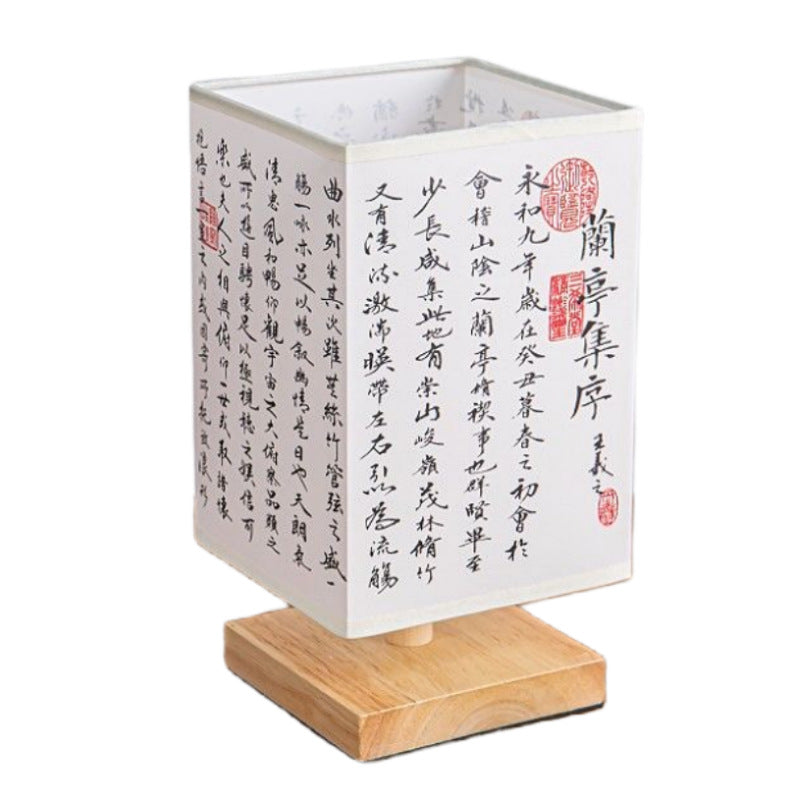 蘭亭集序
王羲之
永和九年歲在癸丑暮春之初會於
會稽山陰之蘭亭脩禊事也群賢畢至
少長咸集此地有崇山峻嶺茂林脩竹
又有清流激湍暎帶左右引以為流觴
曲水列坐其次雖無絲竹管弦之盛一
觴一咏亦足以暢叙幽情是日也天朗氣
清惠風和暢仰觀宇宙之大俯察品類之
盛所以遊目騁懷足以極視聽之娛信可
樂也夫人之相與俯仰一世或取諸懷
抱悟言一室之內或因寄所託放浪形